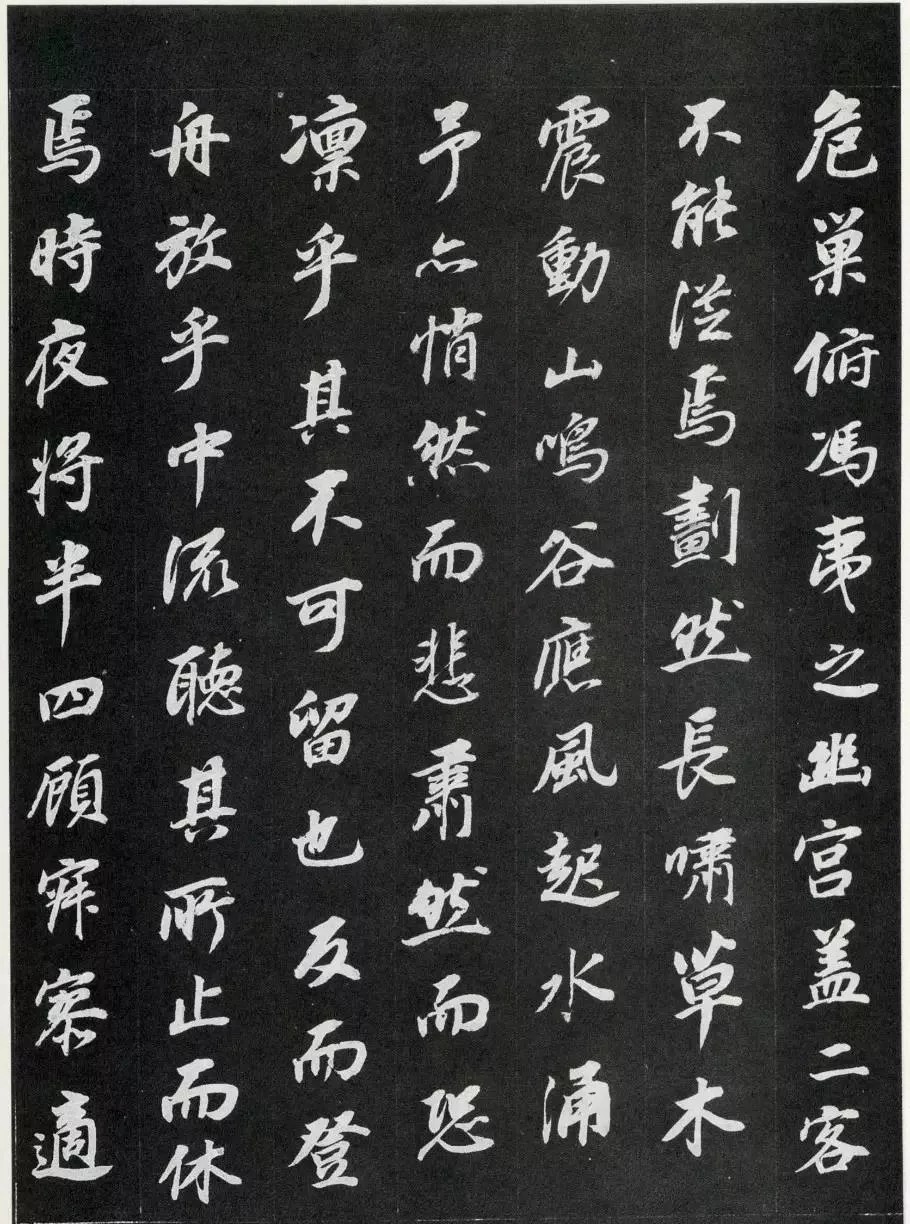 危巢俯馮夷之幽宮盖二客
不能從焉劃然長嘯草木
震動山鳴谷應風起水涌
予亦悄然而悲肅然而恐
凜乎其不可留也反而登
舟放乎中流聽其所止而休
焉時夜将半四顧寂寥適